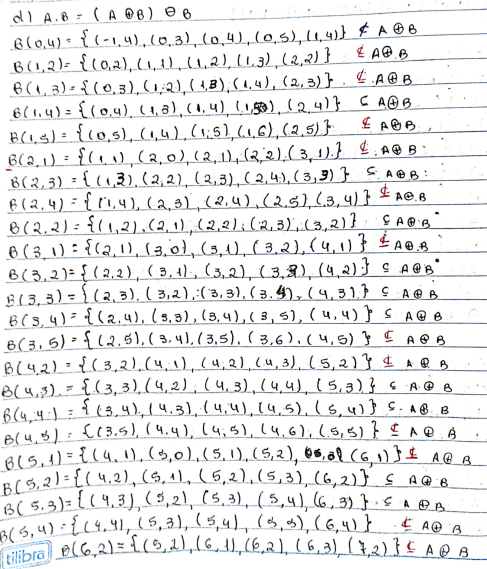 d) A.B = (A ⊕ B) ⊖ B
B(0,4) = {(-1,4), (0,3), (0,4), (0,5), (1,4)} ⊄ A ⊕ B
B(1,2) = {(0,2), (1,1), (1,2), (1,3), (2,2)} ⊄ A ⊕ B
B(1,3) = {(0,3), (1,2), (1,3), (1,4), (2,3)} ⊄ A ⊕ B
B(1,4) = {(0,4), (1,3), (1,4), (1,5), (2,4)} ⊂ A ⊕ B
B(1,5) = {(0,5), (1,4), (1,5), (1,6), (2,5)} ⊄ A ⊕ B
B(2,1) = {(1,1), (2,0), (2,1), (2,2), (3,1)} ⊄ A ⊕ B
B(2,3) = {(1,3), (2,2), (2,3), (2,4), (3,3)} ⊂ A ⊕ B
B(2,4) = {(1,4), (2,3), (2,4), (2,5), (3,4)} ⊄ A ⊕ B
B(2,2) = {(1,2), (2,1), (2,2), (2,3), (3,2)} ⊂ A ⊕ B
B(3,1) = {(2,1), (3,0), (3,1), (3,2), (4,1)} ⊄ A ⊕ B
B(3,2) = {(2,2), (3,1), (3,2), (3,3), (4,2)} ⊂ A ⊕ B
B(3,3) = {(2,3), (3,2), (3,3), (3,4), (4,3)} ⊂ A ⊕ B
B(3,4) = {(2,4), (3,3), (3,4), (3,5), (4,4)} ⊂ A ⊕ B
B(3,5) = {(2,5), (3,4), (3,5), (3,6), (4,5)} ⊄ A ⊕ B
B(4,2) = {(3,2), (4,1), (4,2), (4,3), (5,2)} ⊄ A ⊕ B
B(4,3) = {(3,3), (4,2), (4,3), (4,4), (5,3)} ⊂ A ⊕ B
B(4,4) = {(3,4), (4,3), (4,4), (4,5), (5,4)} ⊂ A ⊕ B
B(4,5) = {(3,5), (4,4), (4,5), (4,6), (5,5)} ⊄ A ⊕ B
B(5,1) = {(4,1), (5,0), (5,1), (5,2), (6,1)} ⊄ A ⊕ B
B(5,2) = {(4,2), (5,1), (5,2), (5,3), (6,2)} ⊂ A ⊕ B
B(5,3) = {(4,3), (5,2), (5,3), (5,4), (6,3)} ⊂ A ⊕ B
B(5,4) = {(4,4), (5,3), (5,4), (5,5), (6,4)} ⊄ A ⊕ B
tilibra B(6,2) = {(5,2), (6,1), (6,2), (6,3), (7,2)} ⊄ A ⊕ B